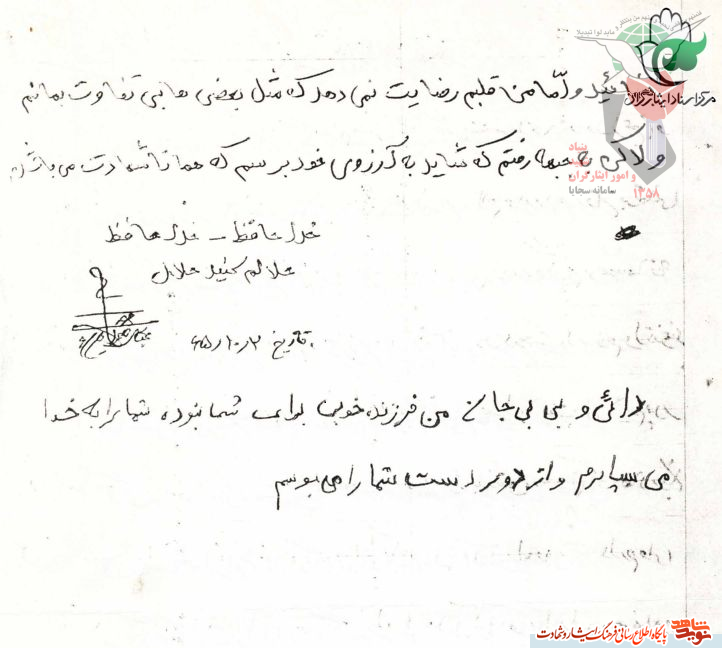 ئید ولّما من قلبم رضایت نمی دهد که مثل بعضی ها بی تفاوت بمانم
و لاکن به جبهه رفتم که شاید به آرزوی خود برسم که همانا شهادت می باشد
خدا حافظ – خدا حافظ
حلالم کنید حلال
تاریخ ۶۵/۱۰/۲
دائی و بی بی جان من فرزند خوبی برای شما نبودم شما را به خدا
می سپارم و از دور دست شما را می بوسم
مرکز اسناد ایثارگران
بنیاد
و امور ایثارگران
سامانه سجایا
۱۳۵۸
نوید شاهد
پایگاه اطلاع رسانی فرهنگ ایثار و شهادت